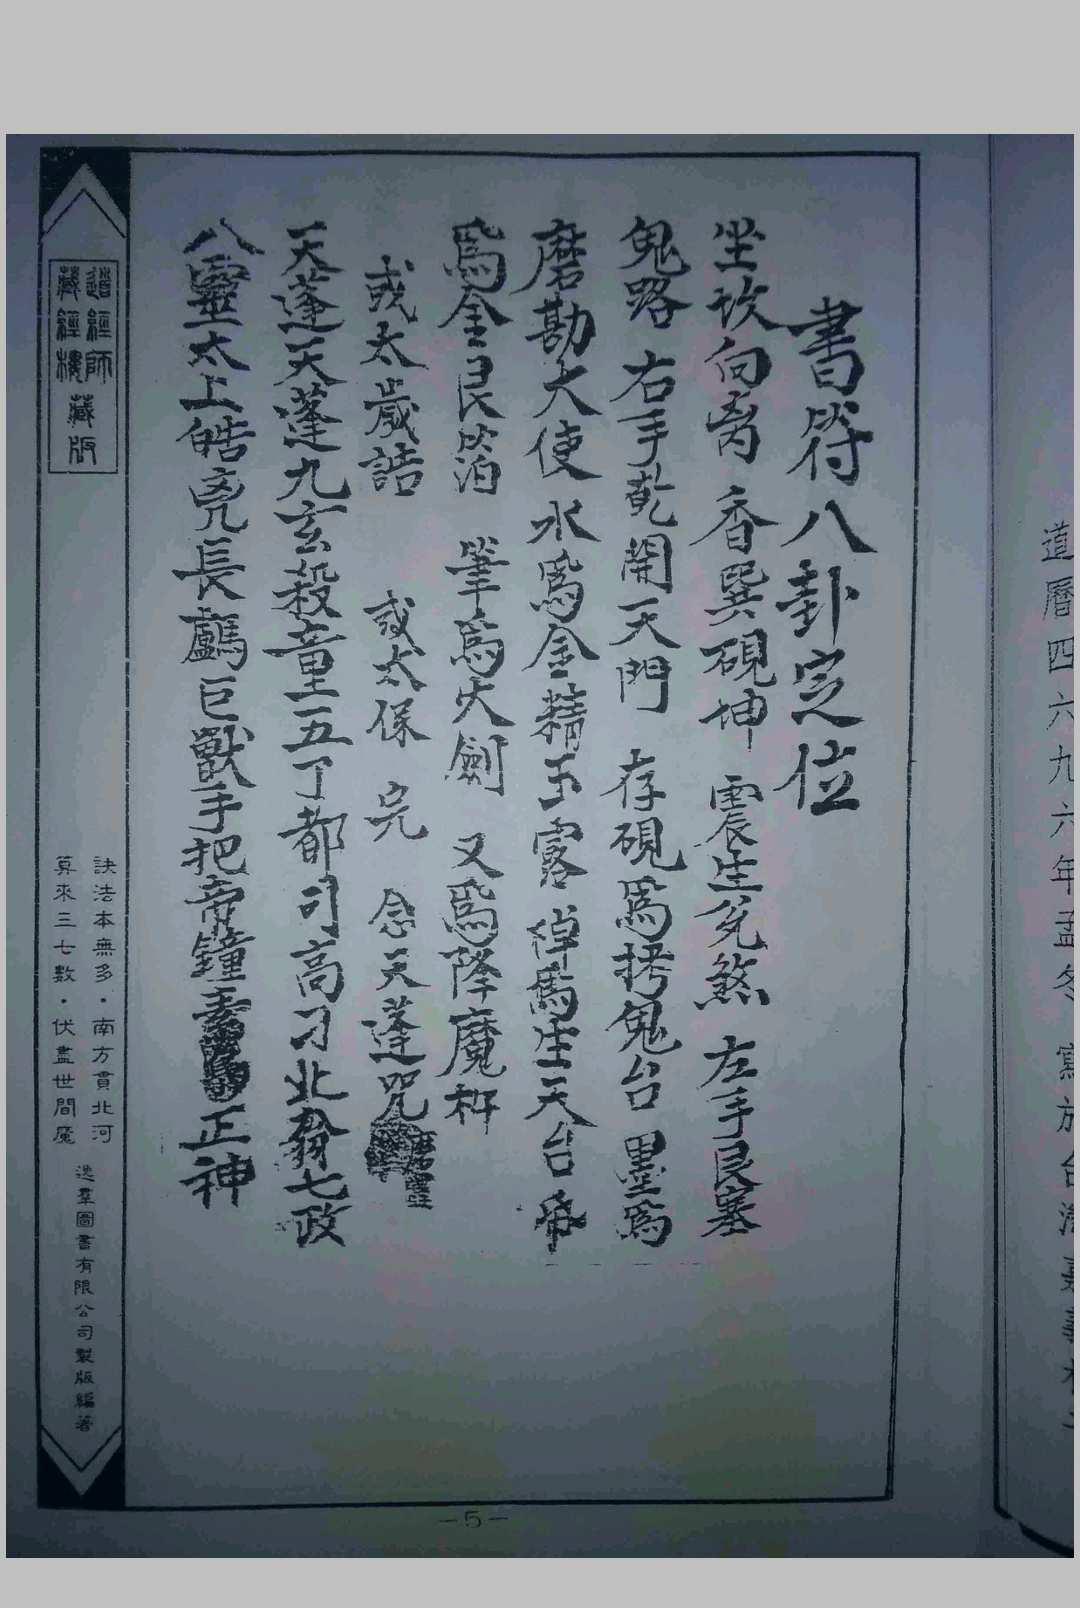 道曆四六九六年孟冬 寫於台灣嘉義
書符八卦定位
坐坎向离 香巽硯坤 震生兌煞 左手艮塞
鬼路 右手乾開天門 存硯為拷鬼台 墨為
磨勘大使 水為金精玉露 為生天台 帋
為金艮箔 筆為火劍 又為降魔杵
或太歲誥 或太保 完 念天蓬咒
天蓬天蓬九玄殺童五丁都司高刁北翁七政
八靈太上皓兇長顱巨獸手把帝鐘素 正神
道經師
藏經樓
藏版
訣法本無多·南方貫北河
算來三七數·伏盡世間魔
逸羣圖書有限公司製版編著
—5—